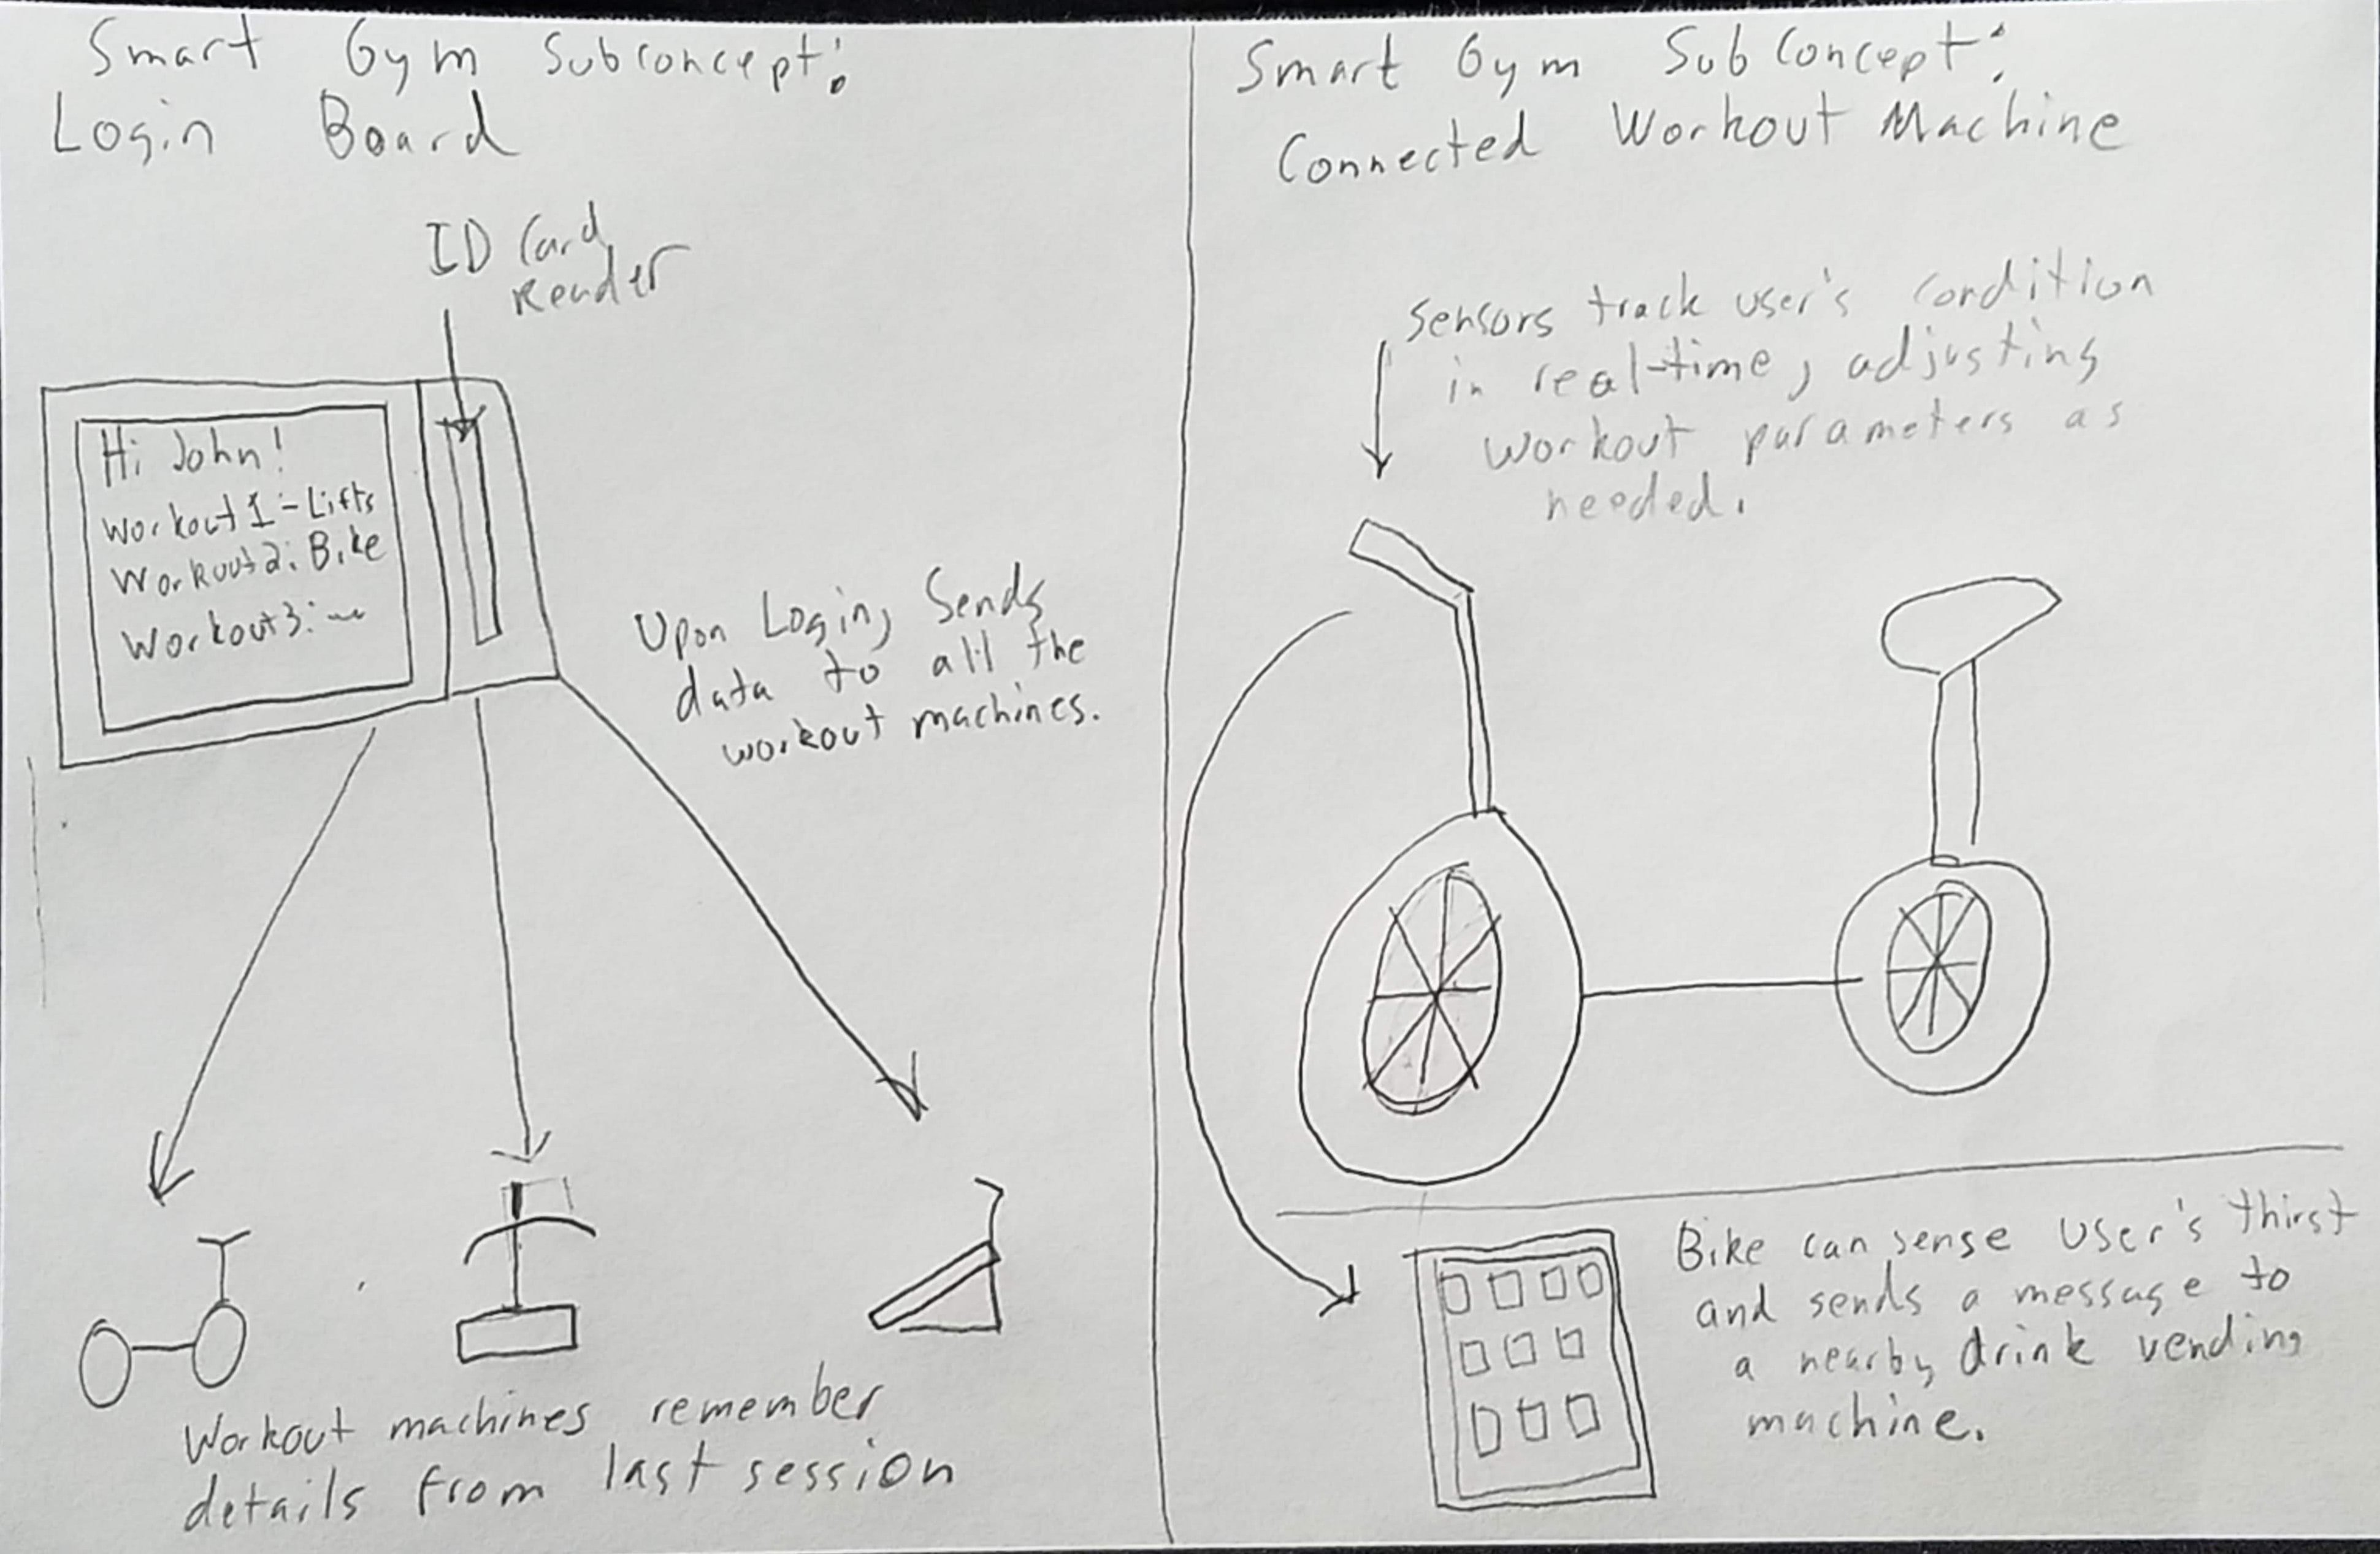 Smart Gym Subconcept:
Login Board
ID Card
Reader
Hi John!
Workout 1 - Lifts
Workout 2: Bike
Workout 3: ~
Upon Login, Sends
data to all the
workout machines.
Workout machines remember
details from last session
Smart Gym SubConcept:
Connected Workout Machine
Sensors track user's condition
in real-time, adjusting
workout parameters as
needed.
Bike can sense user's thirst
and sends a message to
a nearby drink vending
machine.